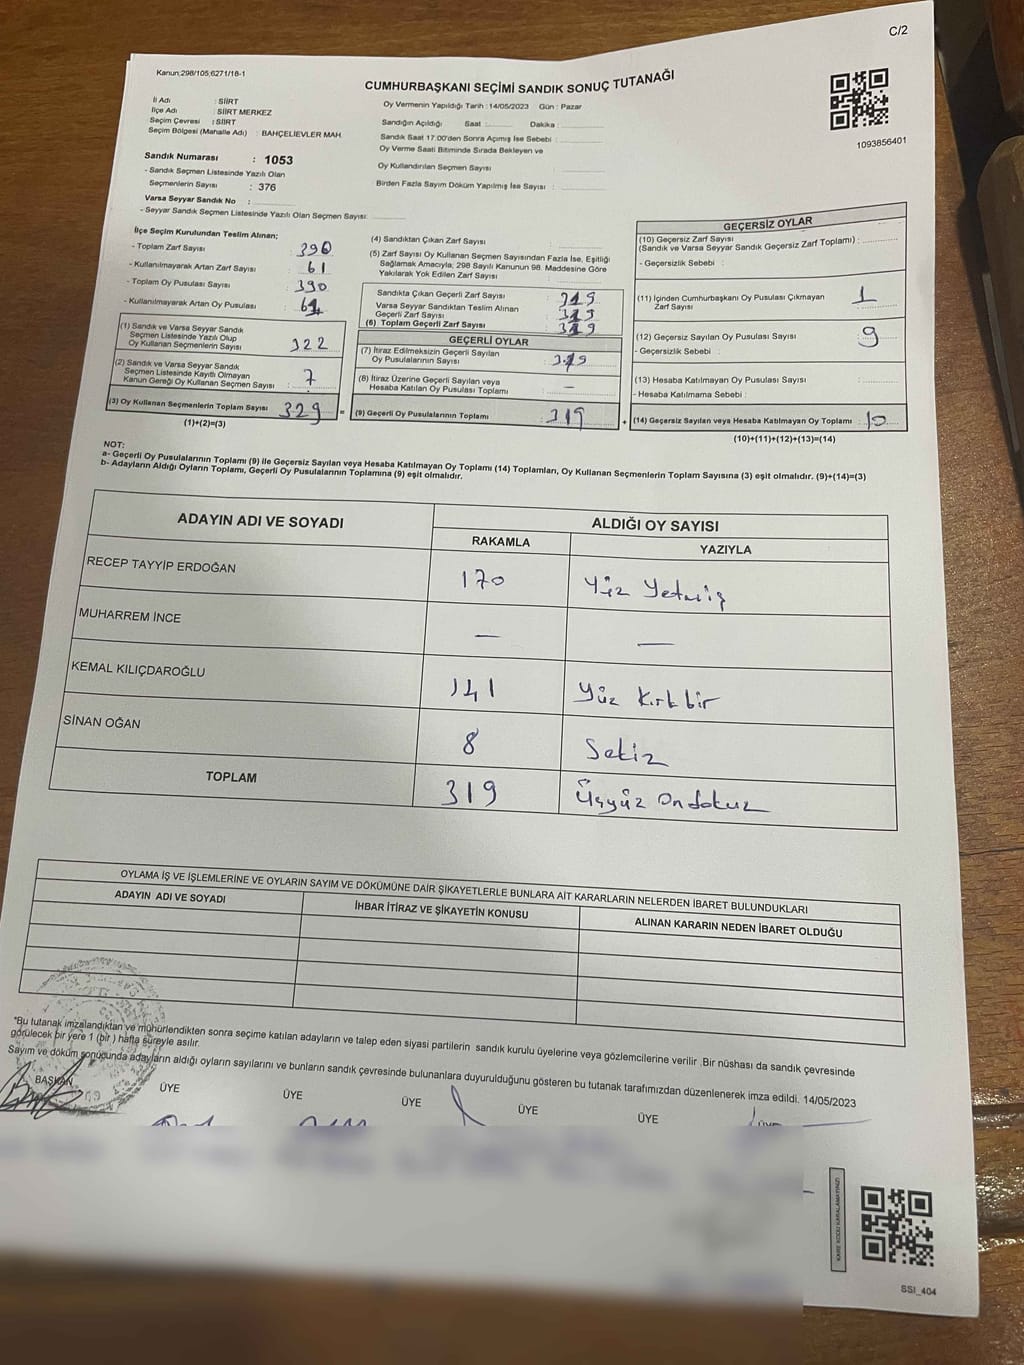 C/2
Kanun;298/105;6271/18-1
CUMHURBAŞKANI SEÇİMİ SANDIK SONUÇ TUTANAĞI
1093856401
İl Adı : SİİRT
İlçe Adı : SİİRT MERKEZ
Seçim Çevresi : SİİRT
Seçim Bölgesi (Mahalle Adı) : BAHÇELİEVLER MAH.
Sandık Numarası : 1053
- Sandık Seçmen Listesinde Yazılı Olan
Seçmenlerin Sayısı : 376
Varsa Seyyar Sandık No :
- Seyyar Sandık Seçmen Listesinde Yazılı Olan Seçmen Sayısı:
Oy Vermenin Yapıldığı Tarih : 14/05/2023 Gün : Pazar
Sandığın Açıldığı Saat : Dakika :
Sandık Saat 17.00'den Sonra Açımış İse Sebebi :
Oy Verme Saati Bitiminde Sırada Bekleyen ve
Oy Kullandırılan Seçmen Sayısı :
Birden Fazla Sayım Döküm Yapılmış İse Sayısı :
İlçe Seçim Kurulundan Teslim Alınan;
- Toplam Zarf Sayısı : 390
- Kullanılmayarak Artan Zarf Sayısı : 61
- Toplam Oy Pusulası Sayısı : 390
- Kullanılmayarak Artan Oy Pusulası : 61
(1) Sandık ve Varsa Seyyar Sandık
Seçmen Listesinde Yazılı Olup
Oy Kullanan Seçmenlerin Sayısı : 322
(2) Sandık ve Varsa Seyyar Sandık
Seçmen Listesinde Kayıtlı Olmayan
Kanun Gereği Oy Kullanan Seçmen Sayısı : 7
(3) Oy Kullanan Seçmenlerin Toplam Sayısı : 329
(1)+(2)=(3)
(4) Sandıktan Çıkan Zarf Sayısı :
(5) Zarf Sayısı Oy Kullanan Seçmen Sayısından Fazla İse, Eşitliği
Sağlamak Amacıyla, 298 Sayılı Kanunun 98. Maddesine Göre
Yakılarak Yok Edilen Zarf Sayısı :
Sandıkta Çıkan Geçerli Zarf Sayısı : 319
Varsa Seyyar Sandıktan Teslim Alınan
Geçerli Zarf Sayısı : 319
(6) Toplam Geçerli Zarf Sayısı : 319
GEÇERLİ OYLAR
(7) İtiraz Edilmeksizin Geçerli Sayılan
Oy Pusulalarının Sayısı : 319
(8) İtiraz Üzerine Geçerli Sayılan veya
Hesaba Katılan Oy Pusulası Toplamı : —
= (9) Geçerli Oy Pusulalarının Toplamı : 319
GEÇERSİZ OYLAR
(10) Geçersiz Zarf Sayısı
(Sandık ve Varsa Seyyar Sandık Geçersiz Zarf Toplamı) :
- Geçersizlik Sebebi :
(11) İçinden Cumhurbaşkanı Oy Pusulası Çıkmayan
Zarf Sayısı : 1
(12) Geçersiz Sayılan Oy Pusulası Sayısı : 9
- Geçersizlik Sebebi :
(13) Hesaba Katılmayan Oy Pusulası Sayısı :
- Hesaba Katılmama Sebebi :
+ (14) Geçersiz Sayılan veya Hesaba Katılmayan Oy Toplamı : 10
(10)+(11)+(12)+(13)=(14)
NOT:
a- Geçerli Oy Pusulalarının Toplamı (9) ile Geçersiz Sayılan veya Hesaba Katılmayan Oy Toplamı (14) Toplamları, Oy Kullanan Seçmenlerin Toplam Sayısına (3) eşit olmalıdır. (9)+(14)=(3)
b- Adayların Aldığı Oyların Toplamı, Geçerli Oy Pusulalarının Toplamına (9) eşit olmalıdır.
ADAYIN ADI VE SOYADI ALDIĞI OY SAYISI
RAKAMLA YAZIYLA
RECEP TAYYİP ERDOĞAN 170 Yüz Yetmiş
MUHARREM İNCE — —
KEMAL KILIÇDAROĞLU 141 Yüz Kırkbir
SİNAN OĞAN 8 Sekiz
TOPLAM 319 Üçyüz Ondokuz
OYLAMA İŞ VE İŞLEMLERİNE VE OYLARIN SAYIM VE DÖKÜMÜNE DAİR ŞİKAYETLERLE BUNLARA AİT KARARLARIN NELERDEN İBARET BULUNDUKLARI
ADAYIN ADI VE SOYADI İHBAR İTİRAZ VE ŞİKAYETİN KONUSU ALINAN KARARIN NEDEN İBARET OLDUĞU
"Bu tutanak imzalandıktan ve mühürlendikten sonra seçime katılan adayların ve talep eden siyasi partilerin sandık kurulu üyelerine veya gözlemcilerine verilir .Bir nüshası da sandık çevresinde
görülecek bir yere 1 (bir ) hafta süreyle asılır.
Sayım ve döküm sonucunda adayların aldığı oyların sayılarını ve bunların sandık çevresinde bulunanlara duyurulduğunu gösteren bu tutanak tarafımızdan düzenlenerek imza edildi. 14/05/2023
BAŞKAN ÜYE ÜYE ÜYE ÜYE ÜYE ÜYE
KARE KODU KARALAMAYINIZ!
SSI_404